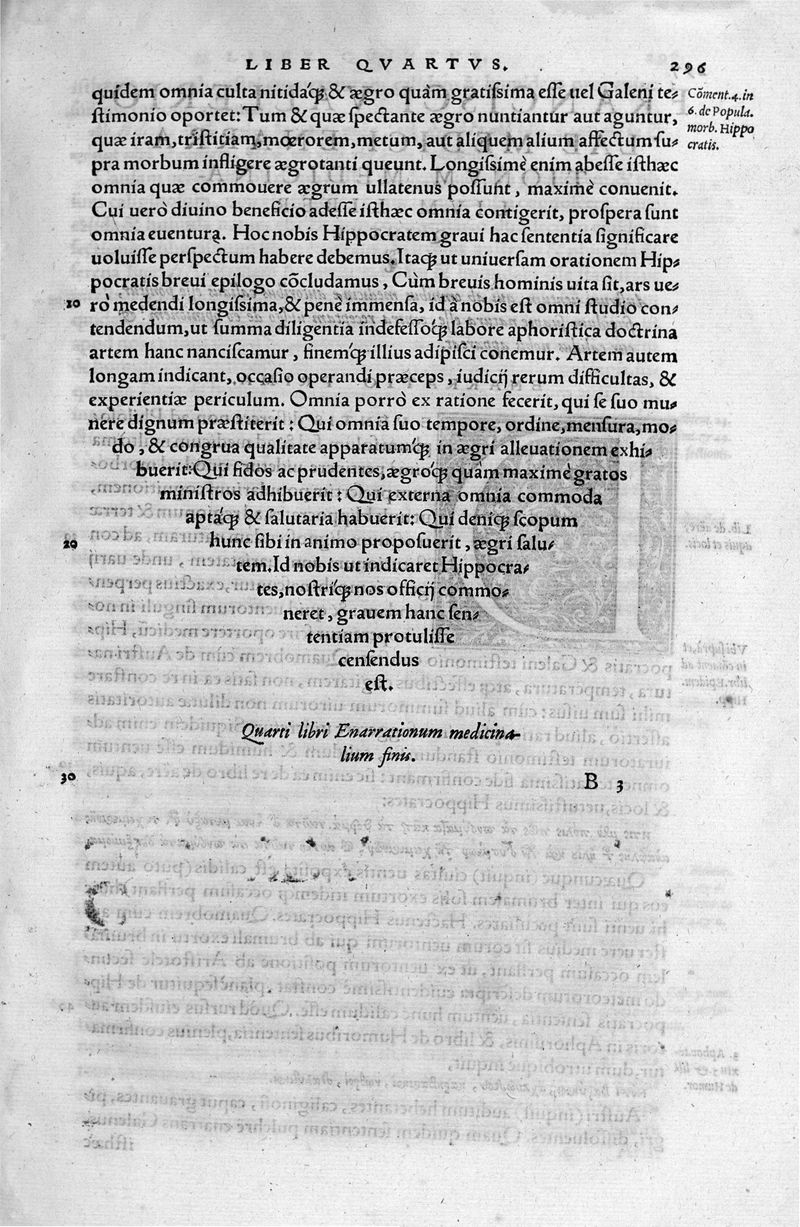 LIBER QVARTVS.
296
quidem omnia culta nitidáq́; & ægro quàm gratissima esse uel Galeni te-
stimonio oportet: Tum & quæ spectante ægro nuntiantur aut aguntur,
quæ iram, tristitiam, mœrorem, metum, aut aliquem alium affectum su-
pra morbum infligere ægrotanti queunt. Longissimè enim abesse isthæc
omnia quæ commouere ægrum ullatenus possunt, maximè conuenit.
Cui uerò diuino beneficio adesse isthæc omnia cōtigerit, prospera sunt
omnia euentura. Hoc nobis Hippocratem graui hac sententia significare
uoluisse perspectum habere debemus. Itaq; ut uniuersam orationem Hip-
pocratis breui epilogo cōcludamus, Cùm breuis hominis uita sit, ars ue-
rò medendi longissima, & penè immensa, id à nobis est omni studio con-
tendendum, ut summa diligentia indefessoq́; labore aphoristica doctrina
artem hanc nanciscamur, finemq́; illius adipisci conemur. Artem autem
longam indicant, occasio operandi præceps, iudicij rerum difficultas, &
experientiæ periculum. Omnia porrò ex ratione fecerit, qui se suo mu-
nere dignum præstiterit: Qui omnia suo tempore, ordine, mensura, mo-
do, & congrua qualitate apparatumq́; in ægri alleuationem exhi-
buerit: Qui fidos ac prudentes, ægroq́; quàm maximè gratos
ministros adhibuerit: Qui externa omnia commoda
aptáq́; & salutaria habuerit: Qui deniq; scopum
hunc sibi in animo proposuerit, ægri salu-
tem. Id nobis ut indicaret Hippocra-
tes, nostriq́; nos officij commo-
neret, grauem hanc sen-
tentiam protulisse
censendus
est.
Cōment. 4. in
6. de Popula.
morb. Hippo
cratis.
10
20
Quarti libri Enarrationum medicina-
lium finis.
30
B 3